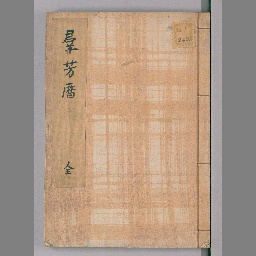 羣芳暦
全